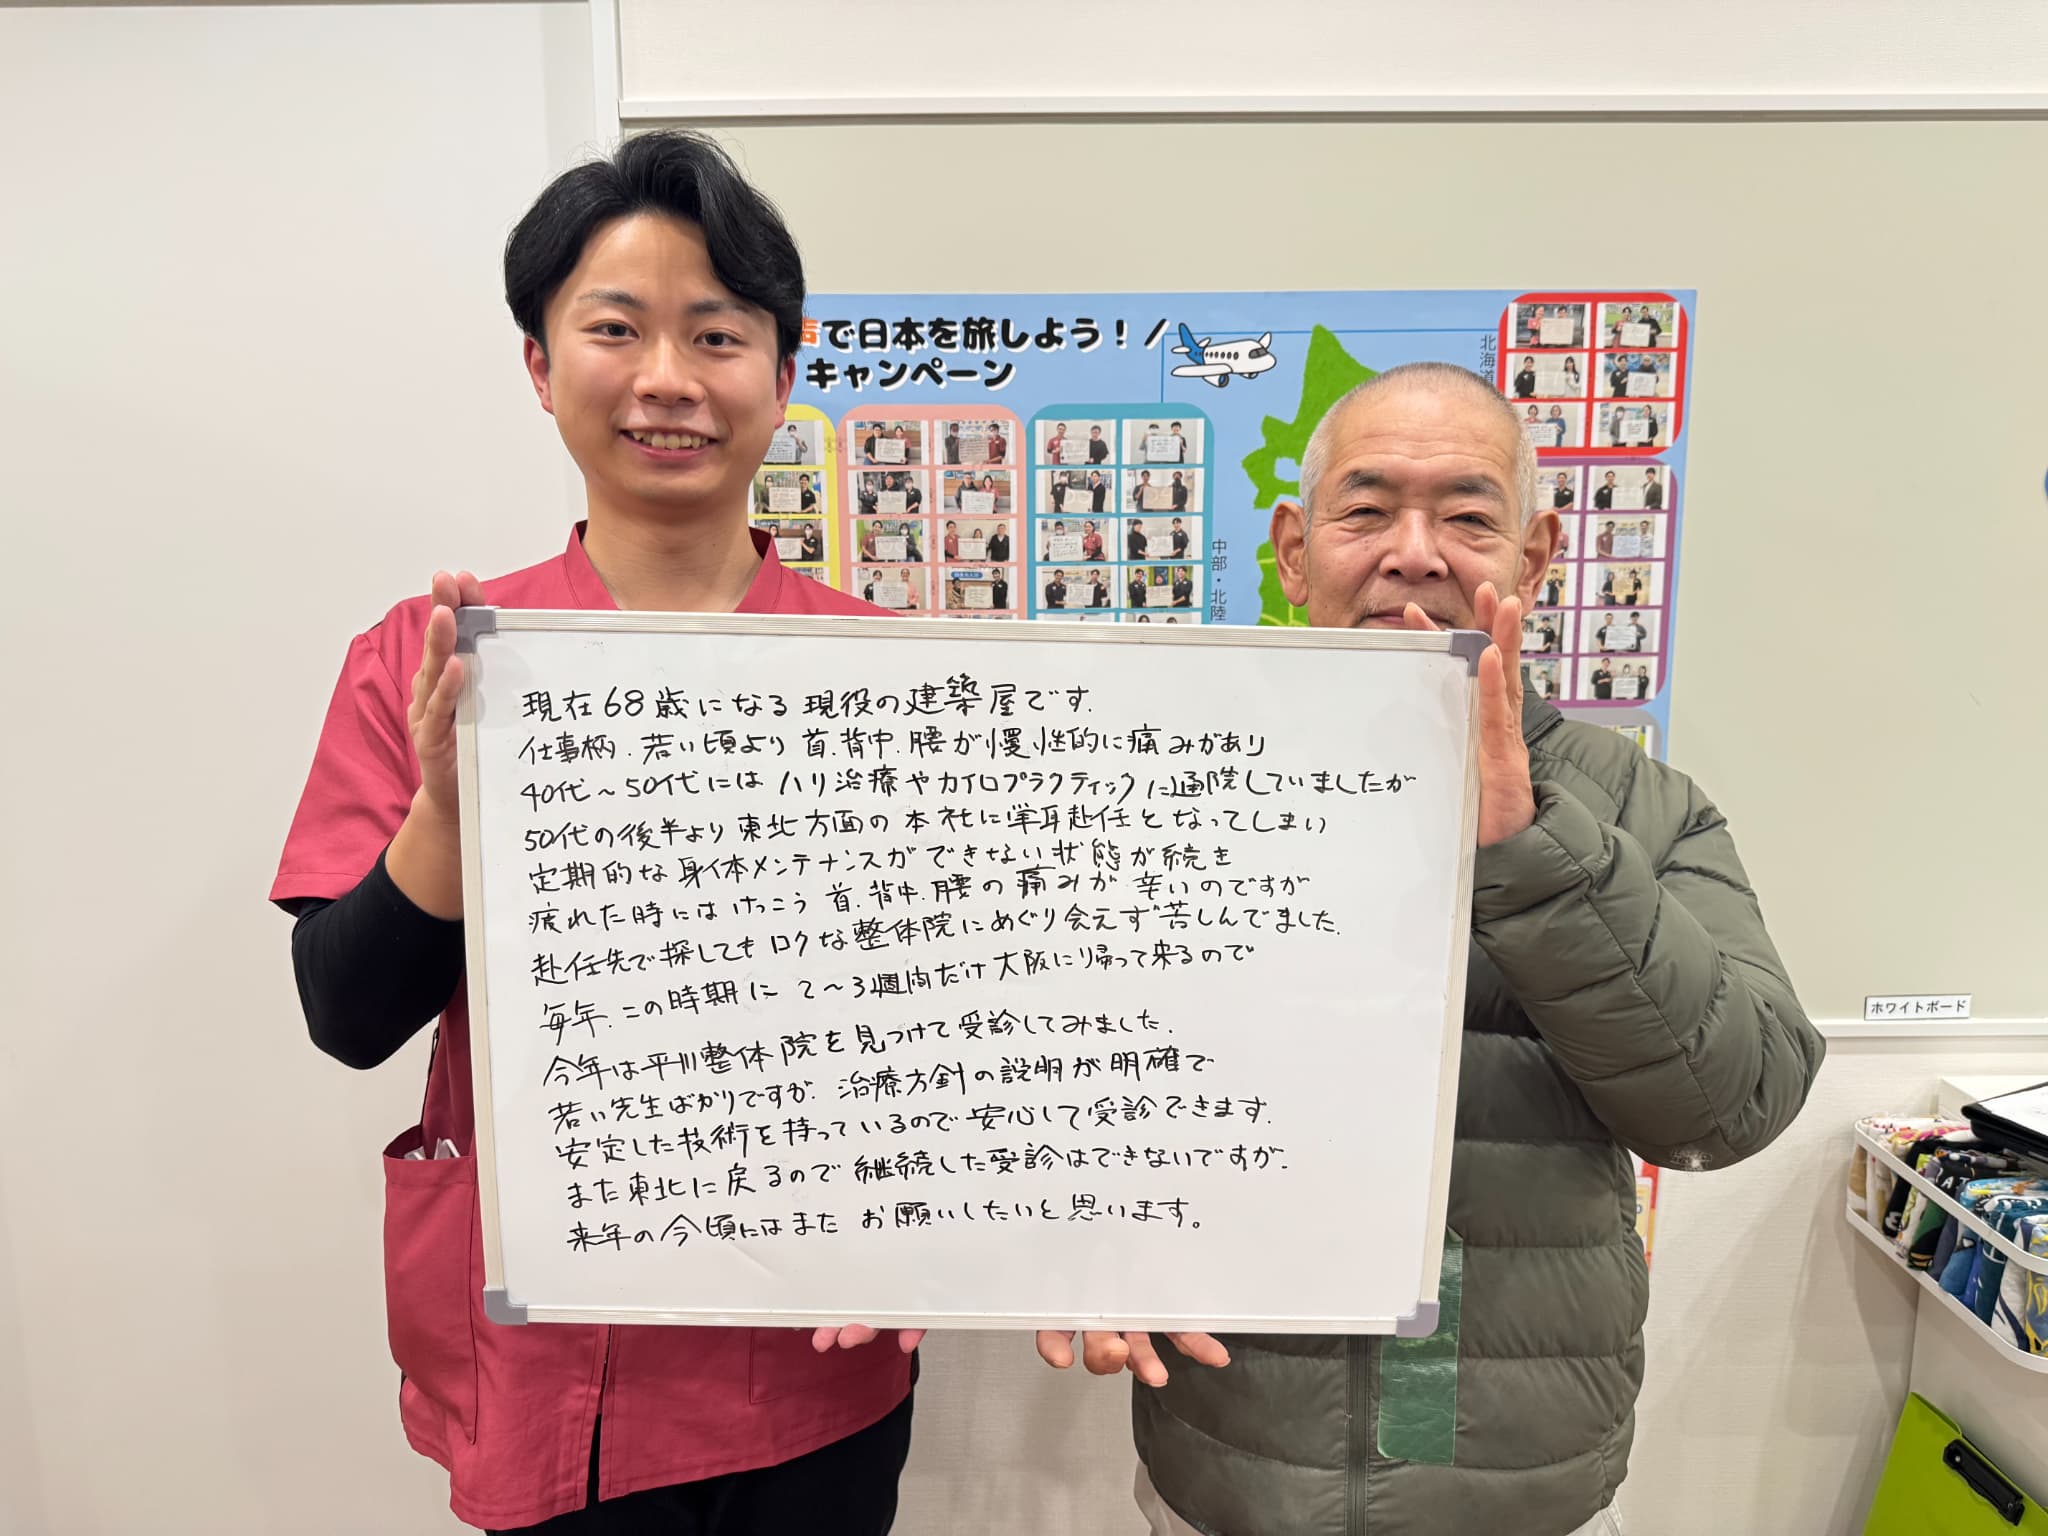 で日本を旅しよう！
キャンペーン
北海道
中部・北陸
現在68歳になる現役の建築屋です.
仕事柄.若い頃より首.背中.腰が慢性的に痛みがあり
40代～50代にはハリ治療やカイロプラクティックに通院していましたが
50代の後半より東北方面の本社に単身赴任となってしまい
定期的な身体メンテナンスができない状態が続き
疲れた時にはけっこう首.背中.腰の痛みが辛いのですが
赴任先で探してもロクな整体院にめぐり会えず苦しんでました.
毎年.この時期に2～3週間だけ大阪に帰って来るので
今年は平川整体院を見つけて受診してみました.
若い先生ばかりですが.治療方針の説明が明確で
安定した技術を持っているので安心して受診できます.
また東北に戻るので継続した受診はできないですが.
来年の今頃にはまたお願いしたいと思います。
ホワイトボード